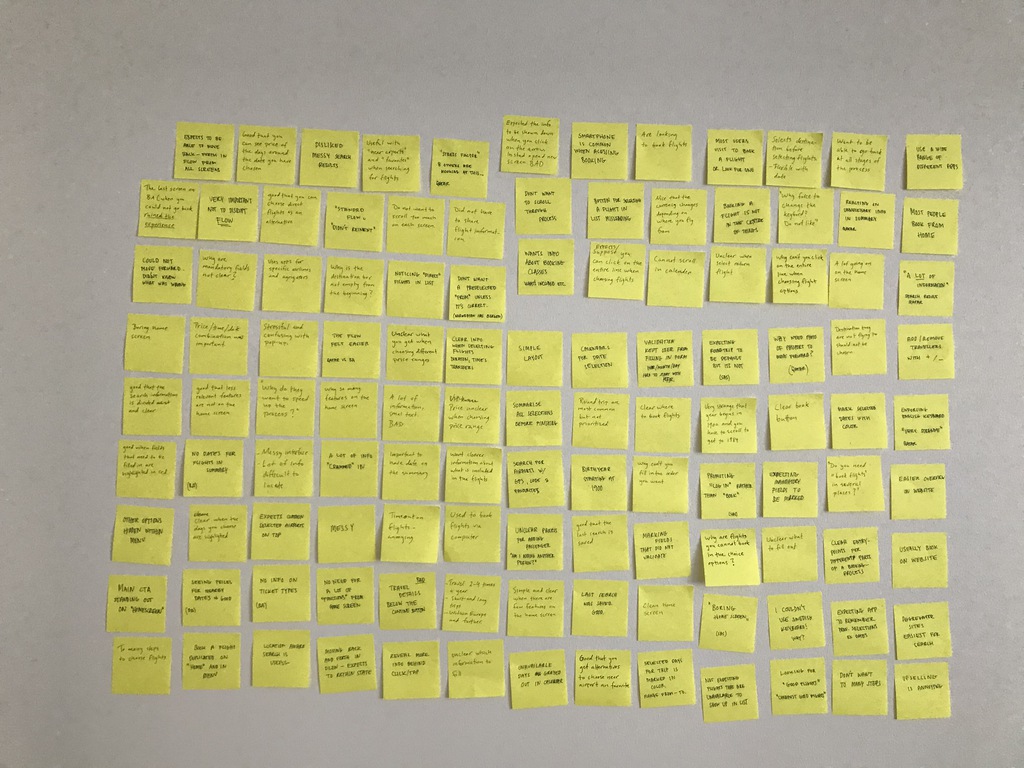 EXPECTS TO BE
ABLE TO MOVE
BACK-FORTH IN
FLOW FROM
ALL SCREENS
Good that you
can see price of
the days around
the date you have
chosen
DISLIKED
MESSY SEARCH
RESULTS
Useful with
"near airports"
and "favourites"
when searching
for flights
"STRESS FACTOR"
Expected the info
to be shown down
when you click
on the button
BAD
SMARTPHONE
IS COMMON
WHEN ACCESSING
BOOKING
Are looking
to book flights
MOST USERS
VISIT TO BOOK
A FLIGHT
OR LOOK FOR ONE
Selects destination
before
selecting flights.
Flexible with
date
Want to be
able to
at all stages of
the process
USE A WIDE
RANGE OF
DIFFERENT APPS
The last screen are
BAD when you
could not go back
ruined the
experience
VERY IMPORTANT
NOT TO DISRUPT
FLOW
good that you can
choose direct
flights as an
alternative
"STANDARD
FLOW,
DIDN'T REINVENT"
Do not want to
scroll too much
on each screen
Did not have
to share
flight information
DON'T WANT
TO SCROLL
THROUGH
PROCESS
BUTTON FOR CHOOSING
A FLIGHT IN
LIST MISLEADING
Nice that the
currency changes
depending on
where you fly
from
BOOKING A
FLIGHT IS NOT
IN THE CENTRE
Why force to
change the
keyboard?
Do not like.
UNNECESSARY INFO
IN SUMMARY
QATAR
MOST PEOPLE
BOOK FROM
HOME
COULD NOT
MOVE FORWARD.
DIDN'T KNOW
WHAT WAS WRONG
Why are
mandatory fields
not clear?
Uses apps for
specific airlines
and aggregates
Why is the
destination bar
not empty from
the beginning?
NOTICING "DIRECT"
FLIGHTS IN LIST
DON'T WANT
A PRESELECTED
"FROM" UNLESS
IT'S CORRECT.
WANTS INFO
ABOUT BOOKING
CLASSES
WHAT'S INCLUDED ETC.
Suppose you
can click on the
entire line when
choosing flights
Cannot scroll
in calendar
Unclear when
select return
flight
Why can't you click
on the entire
line when
choosing flight
options
A lot going
on on the home
screen
"A LOT OF
INFORMATION"
SEARCH RESULT
QATAR
Boring home
screen
Price/time/date
combination was
important
Stressful and
confusing with
pop-up.
THE FLOW
FELT EASIER
QATAR VS BA
Unclear what
you get when
choosing different
price ranges
CLEAR INFO
WHEN SELECTING
FLIGHTS
DURATION, TIMES
TRANSFERS
SIMPLE
LAYOUT
CALENDARS
FOR DATE
SELECTION
VALIDATION
KEPT USER FROM
FILLING IN FORM
EXPECTING
ROUNDTRIP TO
BE DEFAULT
BUT IS NOT
(SAS)
WHY NEED
TO
MOVE FORWARD?
(QATAR)
Destination they
are not flying
to should not be
chosen
ADD/REMOVE
TRAVELLERS
WITH + / -
good that the
search information
is divided
and clear
good that less
relevant features
are not on the
home screen
"Why do they
want to speed
up the
process?"
Why so many
features on the
home screen
A lot of
information,
small text
BAD
Price unclear
when choosing
price range
SUMMARISE
ALL SELECTIONS
BEFORE FINISHING
Round trip are
most common
but not
prioritised
Clear where
to book flights
Very strange that
year begins in
1900 and you
have to scroll to
get to 1984
Clear book
buttons
MARK SELECTED
DATES WITH
COLOR
ENFORCING
ENGLISH KEYBOARD
QATAR
good when fields
that need to be
filled in are
highlighted in red
NO DATES FOR
FLIGHTS IN
SUMMARY
(BA)
Messy interface
Lot of info
difficult to
locate
A LOT OF INFO
"CRAMMED" IN
Important to
have date on
the summary
Want clearer
information about
what is included
in the flights
SEARCH FOR
AIRPORTS W/
GPS, LOC &
FAVOURITES
BIRTH YEAR
STARTING AT
1900
Why can't you
fill in the order
you want
PROMOTING
"LOG IN" RATHER
THAN "BOOK"
(SAS)
EXPECTING
MANDATORY
FIELDS TO
BE MARKED
"Do you need
'book flights'
in several
places?"
EASIER OVERVIEW
ON WEBSITE
OTHER OPTIONS
HIDDEN WITHIN
MENU
Clear when the
days you choose
are highlighted
EXPECTS COMMON
SELECTED AIRPORTS
ON TOP
MESSY
Timeaxion
flights -
annoying
Used to book
flights via
computer
UNCLEAR PHRASES
FOR ADDING
PASSENGER
"AM I ADDING ANOTHER
PARENT"
good that the
last search is
saved
MARKING FIELDS
THAT DO NOT
VALIDATE
Why are flights
you cannot book
in the choice
options?
Unclear what
to fill out
CLEAR ENTRY-
POINTS FOR
DIFFERENT PARTS
OF A BOOKING-
PROCESS
USUALLY BOOK
ON WEBSITE
MAIN CTA
STANDING OUT
ON "HOMESCREEN"
SEEING PRICES
FOR NEARBY
DATES IS GOOD
(BA)
NO INFO ON
TICKET TYPES
(BA)
NO NEED FOR
A LOT OF
"FUNCTIONS" FROM
HOME SCREEN
TRAVEL BAR
DETAILS
BELOW THE
CONTINUE BUTTON
Travel 2-4 times
a year
- Short and long
trips
Simple and clear
when there are
few features on
the home screen
LAST SEARCH
WAS SAVED.
GOOD.
Clean home
screen
"BORING
START SCREEN"
I COULDN'T
USE SWEDISH
KEYBOARD!
WHY?
EXPECTING APP
TO REMEMBER
PREV SELECTIONS
OF DATES
AGGREGATED
SITES
EASIEST FOR
SEARCH
To many steps
to choose flights
BOOK A FLIGHT
DUPLICATED ON
"HOME" AND IN
MENU
LOCATION AWARE
SEARCH IS
USEFUL
MOVING BACK
AND FORTH IN
FLOW - EXPECTS
TO RETAIN STATE
REVEAL MORE
INFO BEHIND
CLICK/TAP
Unclear which
information to
fill
UNAVAILABLE
DAYS ARE GREYED
OUT IN CALENDAR
Good that you
get alternatives
to choose near
airport and favorite
SELECTED DAYS
FOR TRIP IS
MARKED IN
COLOR.
RANGE FROM-TO.
NOT EXPECTING
FLIGHTS THAT ARE
UNAVAILABLE TO
SHOW UP IN LIST
LOOKING FOR
"GOOD FLIGHTS"
DON'T WANT
TO MANY STEPS
UPSELLING
IS ANNOYING